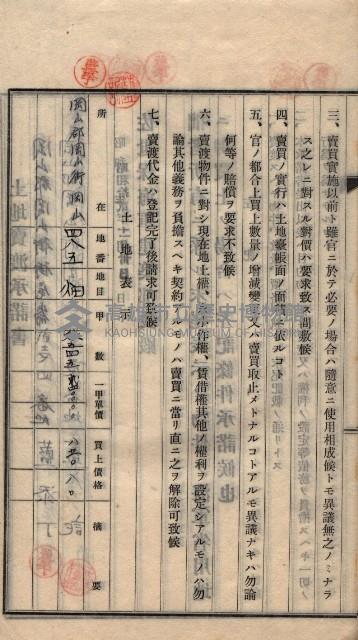 三、賣買實施以前ト雖官ニ於テ必要ノ場合ハ隨意ニ使用相成候トモ異議無之ノミナラ
ス之レニ對スル對價ハ要求致ス間敷候
四、賣買ノ實行ハ土地臺帳面ノ面積ニ依ルコト
五、官ノ都合上買上數量ノ增減變更又ハ賣買取止メトナルコトアルモ異議ナキハ勿論
何等ノ賠償ヲ要求不致候
六、賣渡物件ニ對シ現在地上權、永小作權、賃借權其他ノ權利ヲ設定シアルモノハ勿
論其他義務ヲ負擔スヘキ契約アルモノハ賣買ニ當リ直ニ之ヲ解除可致候
七、賣渡代金ハ登記完了後請求可致候
土地表
所在 地番 地目 甲數 一甲單價 買上價格 摘要
岡山郡岡山街岡山 四八五 畑
高雄市立歷史博物館
KAOHSIUNG MUSEUM OF HISTORY